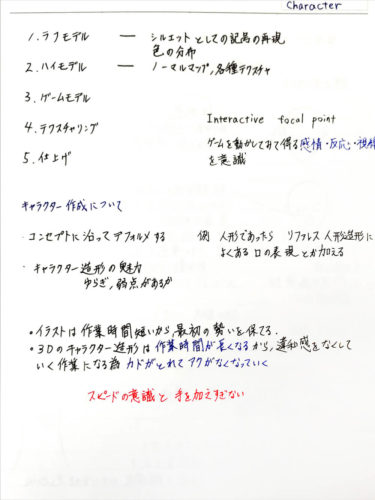 Character
1. ラフモデル ― シルエットとしての記号の再現
色の分布
2. ハイモデル ― ノーマルマップ,各種テクスチャ
3. ゲームモデル
4. テクスチャリング Interactive focal point
ゲームを動かしてみて得る感情・反応・視線
5. 仕上げ を意識
キャラクター作成について
・コンセプトに沿ってデフォルメする 例 人形であったら リアレス人形造形に
よくある口の表現とか加える
・キャラクター造形の魅力
ゆらぎ,弱点があるか
・イラストは作業時間短いから,最初の勢いを保てる.
・3Dのキャラクター造形は作業時間が長くなるから,違和感をなくして
いく作業になる為 カドがとれてアクがなくなっていく
スピードの意識と手を加えすぎない